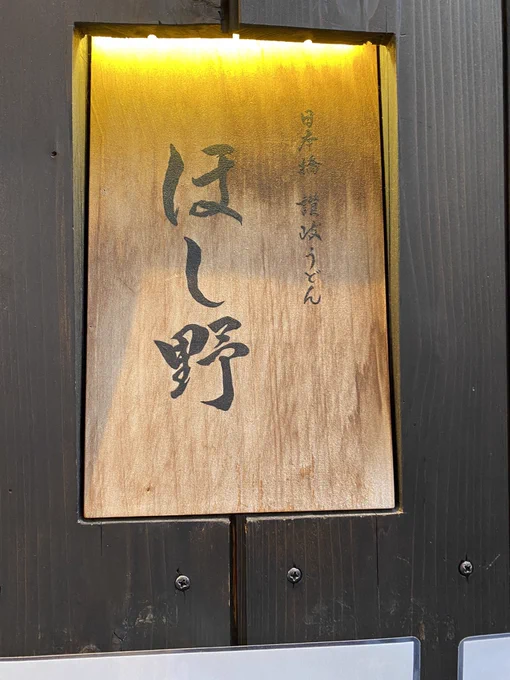 日本橋 讃岐うどん
ほし野